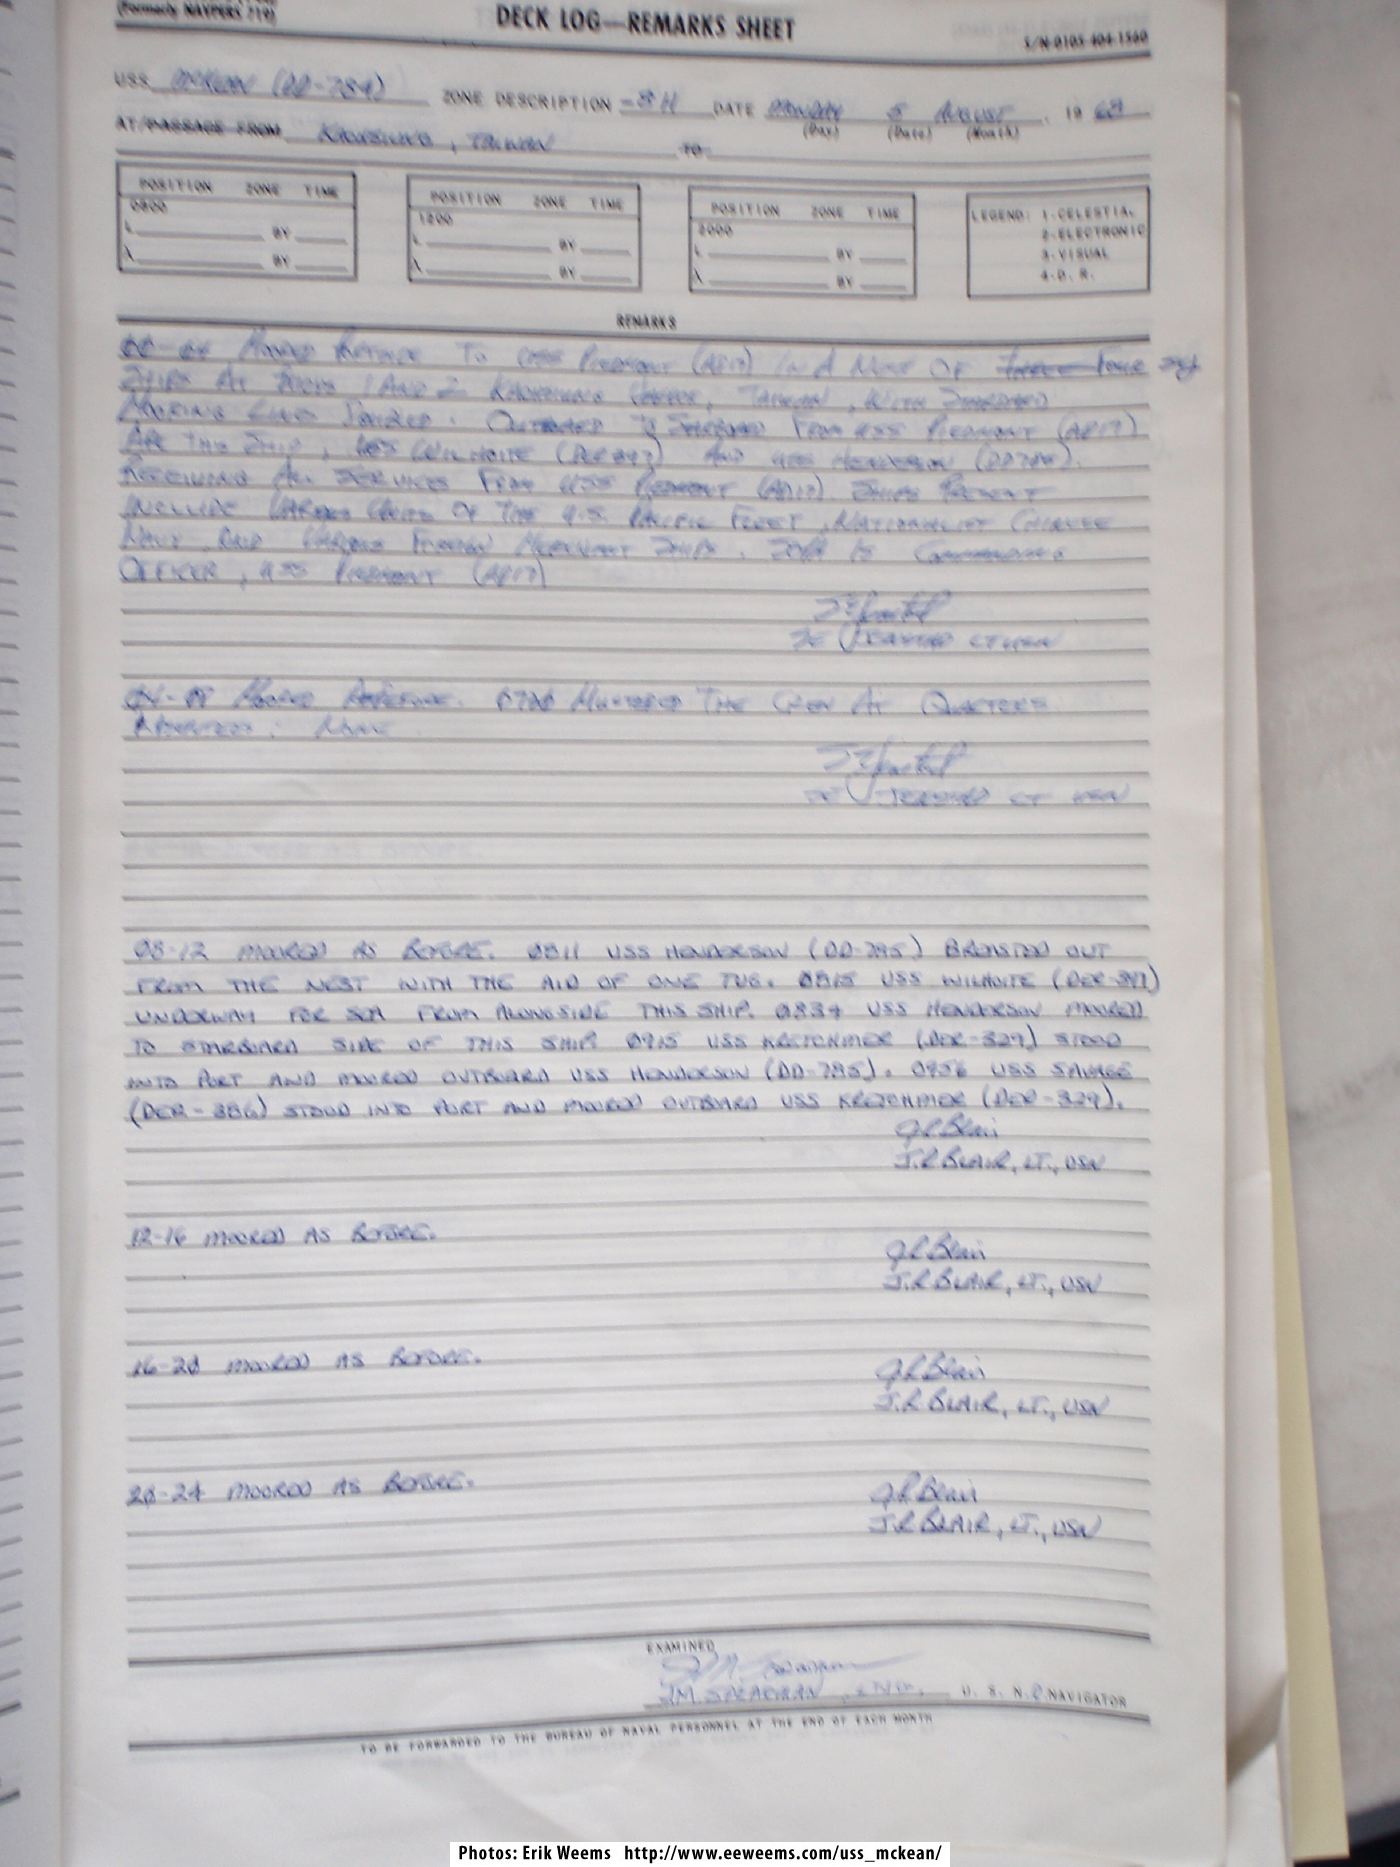 (Formerly NAVPERS 719)
DECK LOG—REMARKS SHEET
S/N-0105-404-1560
USS McKEAN (DD-784) ZONE DESCRIPTION -8H DATE MONDAY 5 AUGUST, 19 68
(Day) (Date) (Month)
AT/PASSAGE FROM KAOHSIUNG, TAIWAN TO
POSITION ZONE TIME
0800
L BY
λ BY
POSITION ZONE TIME
1200
L BY
λ BY
POSITION ZONE TIME
2000
L BY
λ BY
LEGEND: 1-CELESTIAL
2-ELECTRONIC
3-VISUAL
4-D. R.
REMARKS
00-04 MOORED TO USS PIEDMONT (AD17) IN A NEST OF THREE FOUR
SHIPS AT BUOYS 1 AND 2 KAOHSIUNG HARBOR, TAIWAN, WITH STANDARD
MOORING LINES DOUBLED. OUTBOARD TO STARBOARD FROM USS PIEDMONT (AD17)
ARE THIS SHIP, USS WILHOITE (DER 397) AND USS HENDERSON (DD785).
RECEIVING ALL SERVICES FROM USS PIEDMONT (AD17). SHIPS PRESENT
INCLUDE VARIOUS UNITS OF THE U.S. PACIFIC FLEET, NATIONALIST CHINESE
NAVY AND VARIOUS FOREIGN MERCHANT SHIPS. SOPA IS COMMANDING
OFFICER, USS PIEDMONT (AD17)
LT USN
04-08 MOORED AS BEFORE. 0700 MUSTERED THE CREW AT QUARTERS
ABSENTEES: NONE
LT USN
08-12 MOORED AS BEFORE. 0811 USS HENDERSON (DD-785) BREASTED OUT
FROM THE NEST WITH THE AID OF ONE TUG. 0815 USS WILHOITE (DER-397)
UNDERWAY FOR SEA FROM ALONGSIDE THIS SHIP. 0834 USS HENDERSON MOORED
TO STARBOARD SIDE OF THIS SHIP. 0915 USS KRETCHMER (DER-329) STOOD
INTO PORT AND MOORED OUTBOARD USS HENDERSON (DD-785). 0956 USS SAVAGE
(DER-386) STOOD INTO PORT AND MOORED OUTBOARD USS KRETCHMER (DER-329).
J.R. Blair
J.R. BLAIR, LT., USN
12-16 MOORED AS BEFORE.
J.R. Blair
J.R. BLAIR, LT., USN
16-20 MOORED AS BEFORE.
J.R. Blair
J.R. BLAIR, LT., USN
20-24 MOORED AS BEFORE.
J.R. Blair
J.R. BLAIR, LT., USN
EXAMINED
J.M. U. S. N.R. NAVIGATOR
TO BE FORWARDED TO THE BUREAU OF NAVAL PERSONNEL AT THE END OF EACH MONTH
Photos: Erik Weems http://www.eeweems.com/uss_mckean/